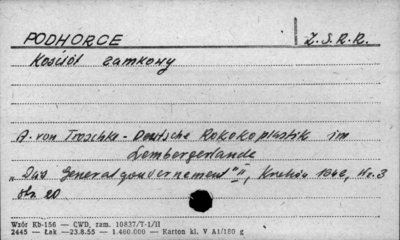 PODHORCE Z.S.R.R.
Kościół zamkowy
A. von Troschke - Deutsche Rokokoplastik im
Lembergerlande
„Das Generalgouvernement" II, Kraków 1942, Nr. 3
str. 20
Wzór Kb-156 — CWD, zam. 10837/T-1/II
2445 — Łak — 23.8.55 — 1.480.000 — Karton kl. V A1/180 g